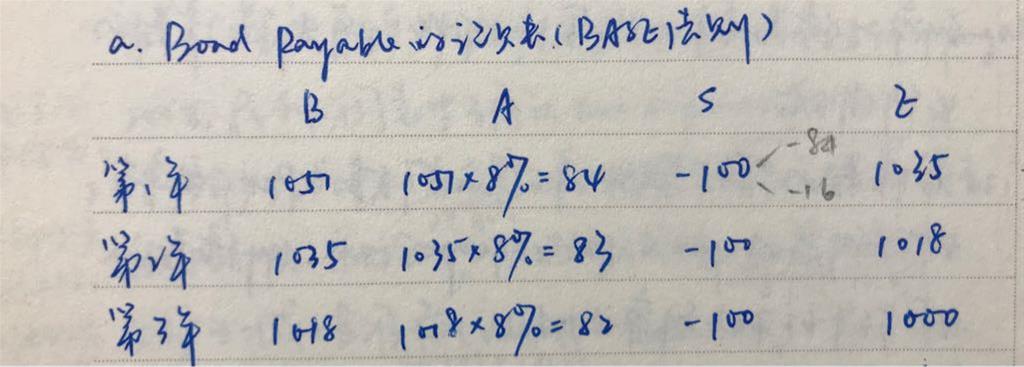 a. Bond Payable的记账表(BASE法则)
B A S E
第1年 1051 1051×8%=84 -100 -84 -16 1035
第2年 1035 1035×8%=83 -100 1018
第3年 1018 1018×8%=82 -100 1000